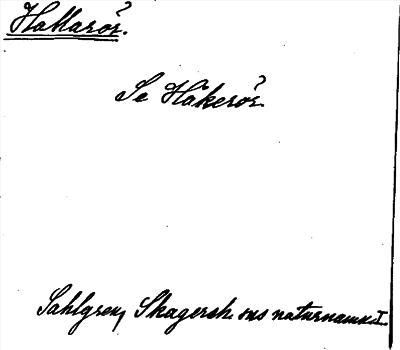 Hallarör?.
Se Håkerör?
Sahlgren, Skagersh. ons naturnamn I.